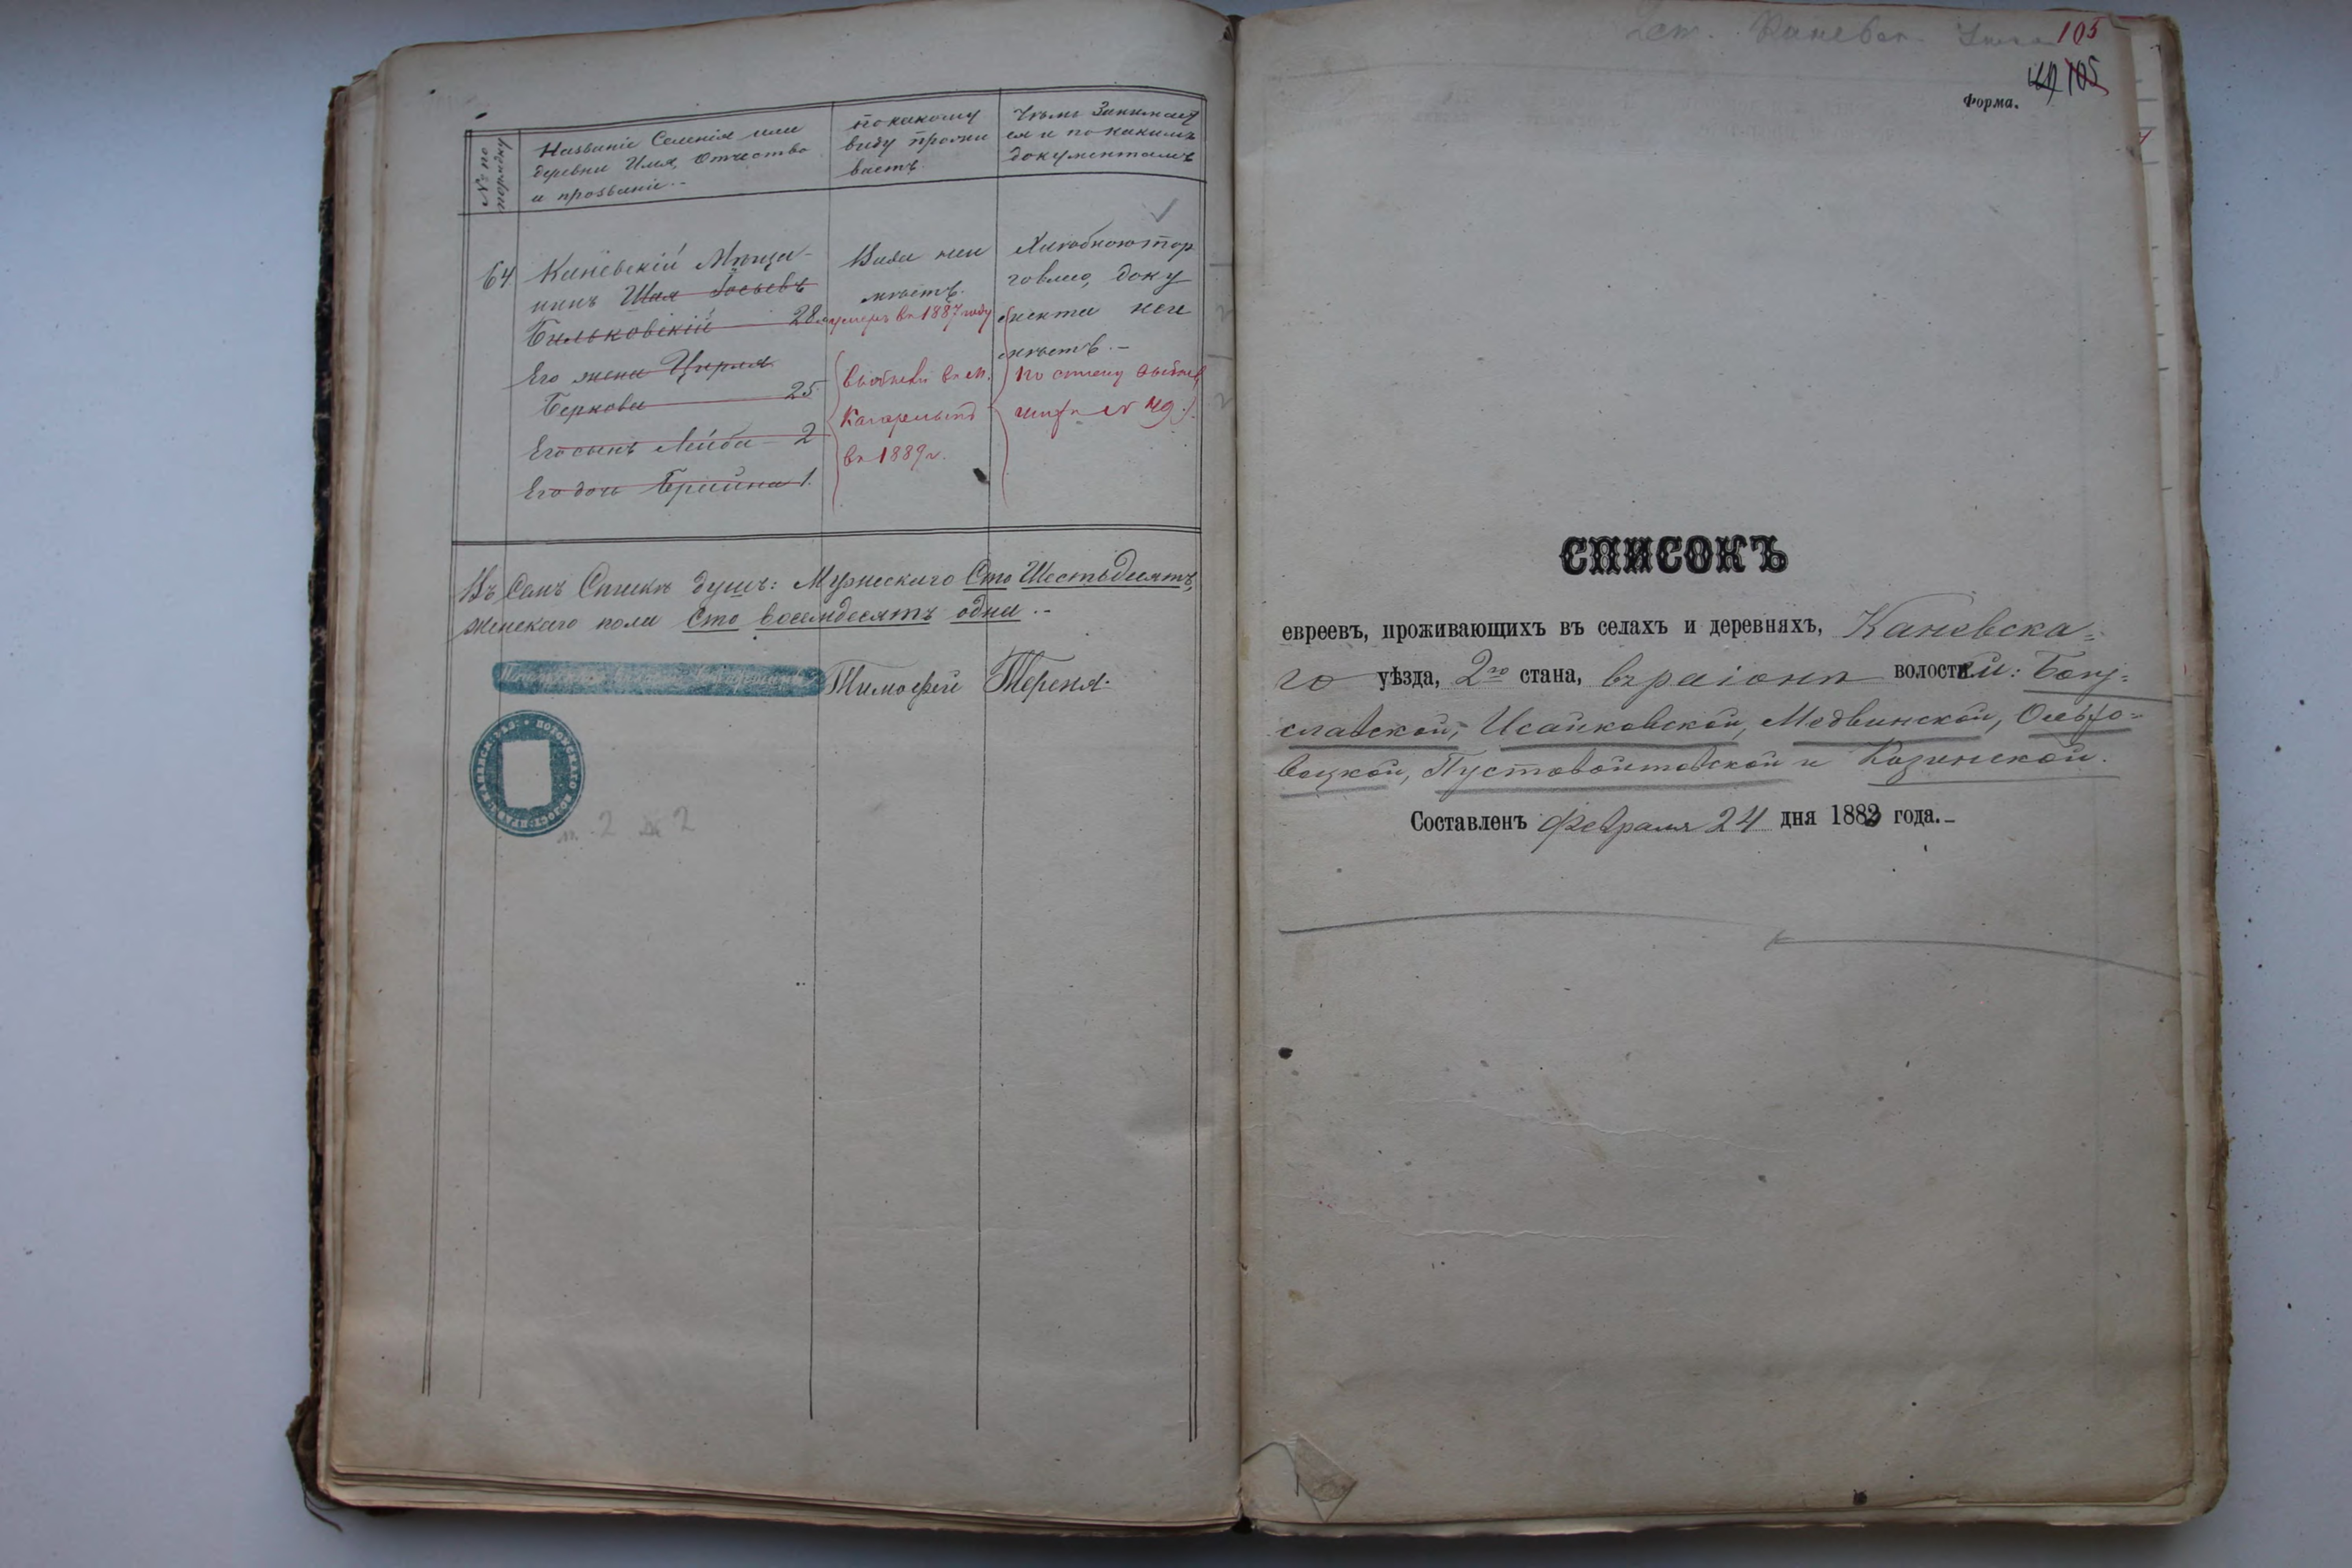 № по порядку
Названіе Селенія или
деревни Имя, Отчество
и прозваніе.-
по какому
виду прожи
ваетъ.
Чѣмъ Занимает
ся и по какимъ
документамъ
64
Каневскій Мѣща-
нинъ Шая Іосьевъ
Бильковскій 28
Его жена Цирля
Беркова 25
Его сынъ Лейба - 2
Его дочь Брейна 1.
Вида неи
мѣетъ.
умеръ въ 1887 году
выбыли въ м.
Кагарлыкъ
въ 1889 г.
Хлѣбною тор
говлею, доку
мента неи
мѣетъ. -
по списку
№ 49.
Въ Семъ Спискѣ душъ: Мужескаго Сто Шестьдесятъ,
женскаго пола Сто восемдесятъ одна.-
Тимофей Тереня.
2 2
105
105
Форма.
СПИСОКЪ
евреевъ, проживающихъ въ селахъ и деревняхъ, Каневска=
го уѣзда, 2го стана, въ раіонѣ волостей: Богу=
славской, Исайковской, Медвинской, Ольхо=
вецкой, Пустовойтовской и Козинской.
Составленъ Февраля 24 дня 1882 года.-